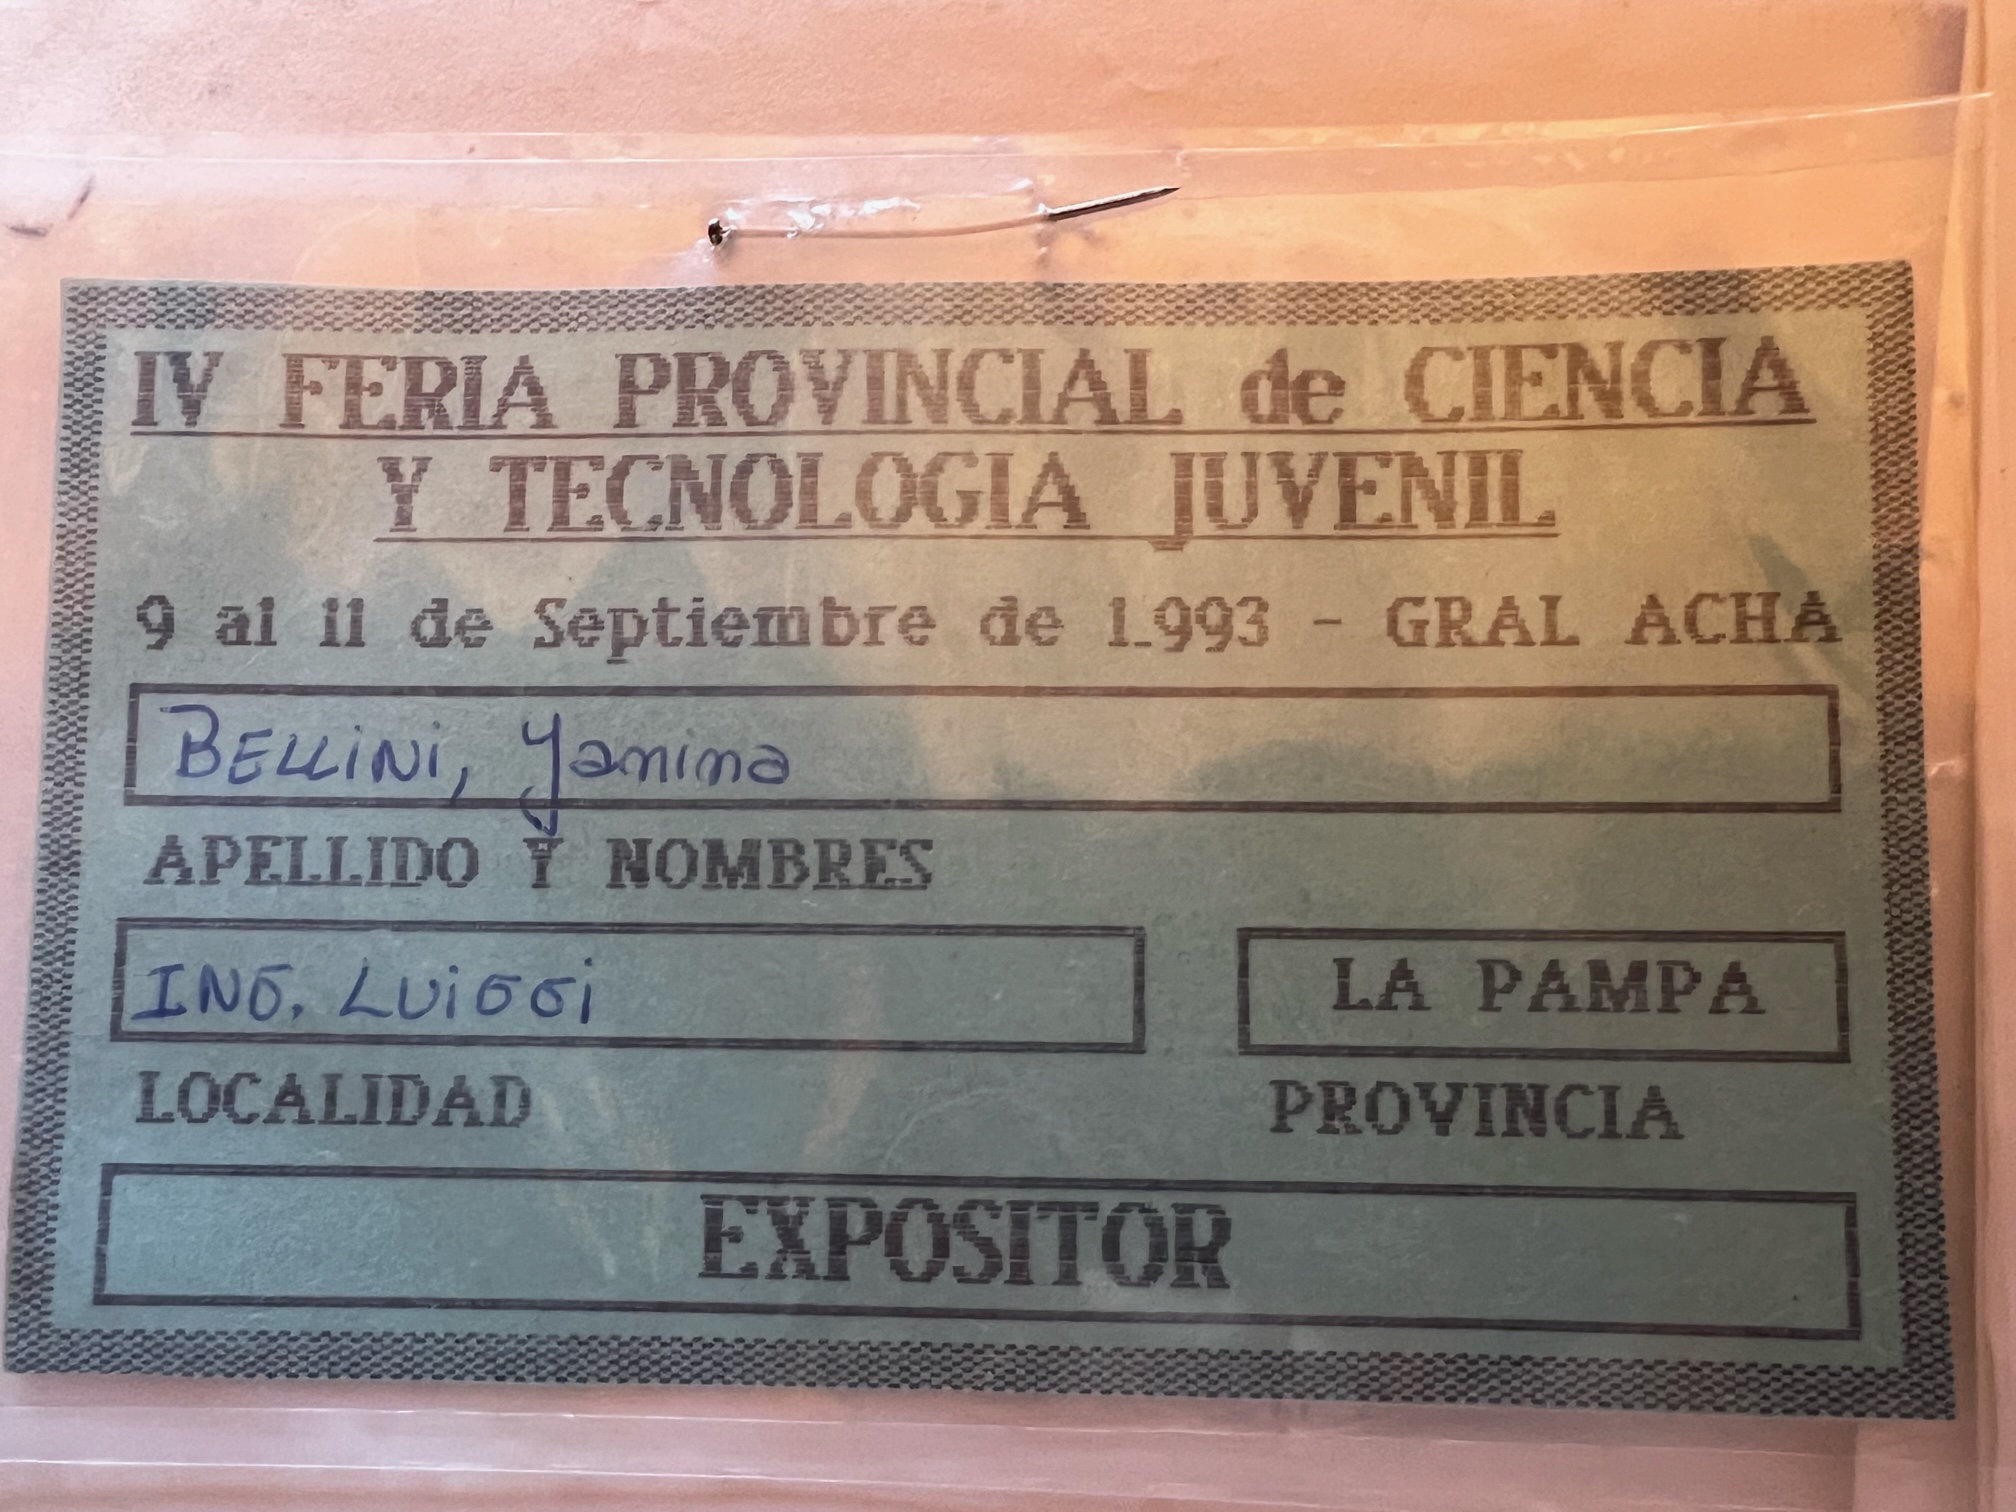 IV FERIA PROVINCIAL de CIENCIA
Y TECNOLOGIA JUVENIL
9 al 11 de Septiembre de 1.993 - GRAL ACHA
BELLiNi, Yanina
APELLIDO Y NOMBRES
ING. LUiGGi
LA PAMPA
LOCALIDAD
PROVINCIA
EXPOSITOR